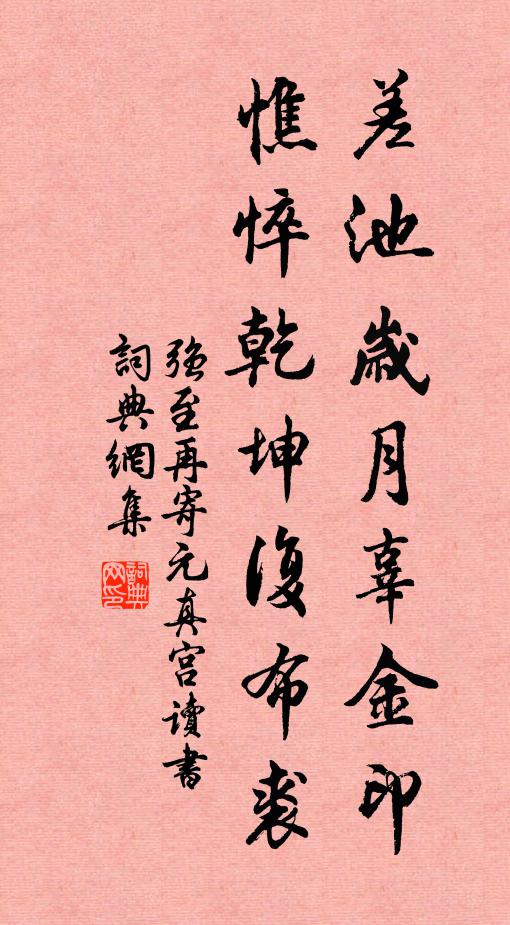 差池歲月辜金印
憔悴乾坤復布裘
強至再寄元真宮讀書
詞典網集
詞典網印